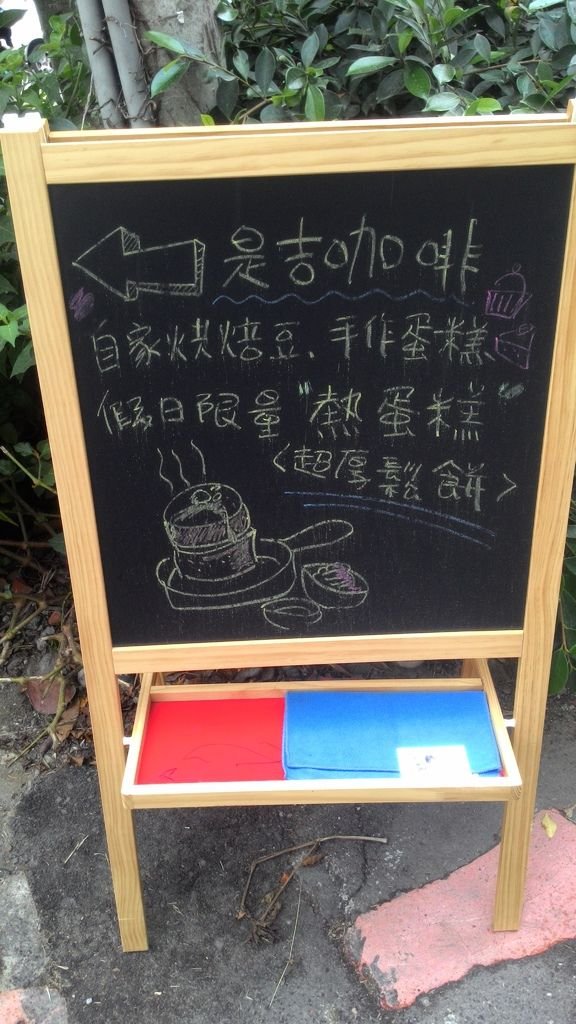 是吉咖啡
自家烘焙豆、手作蛋糕、
假日限量"熱蛋糕"
<超厚鬆餅>